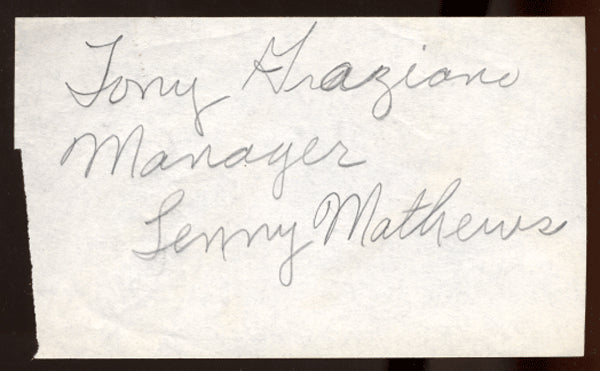 Tony Graziano
Manager
Lenny Mathews